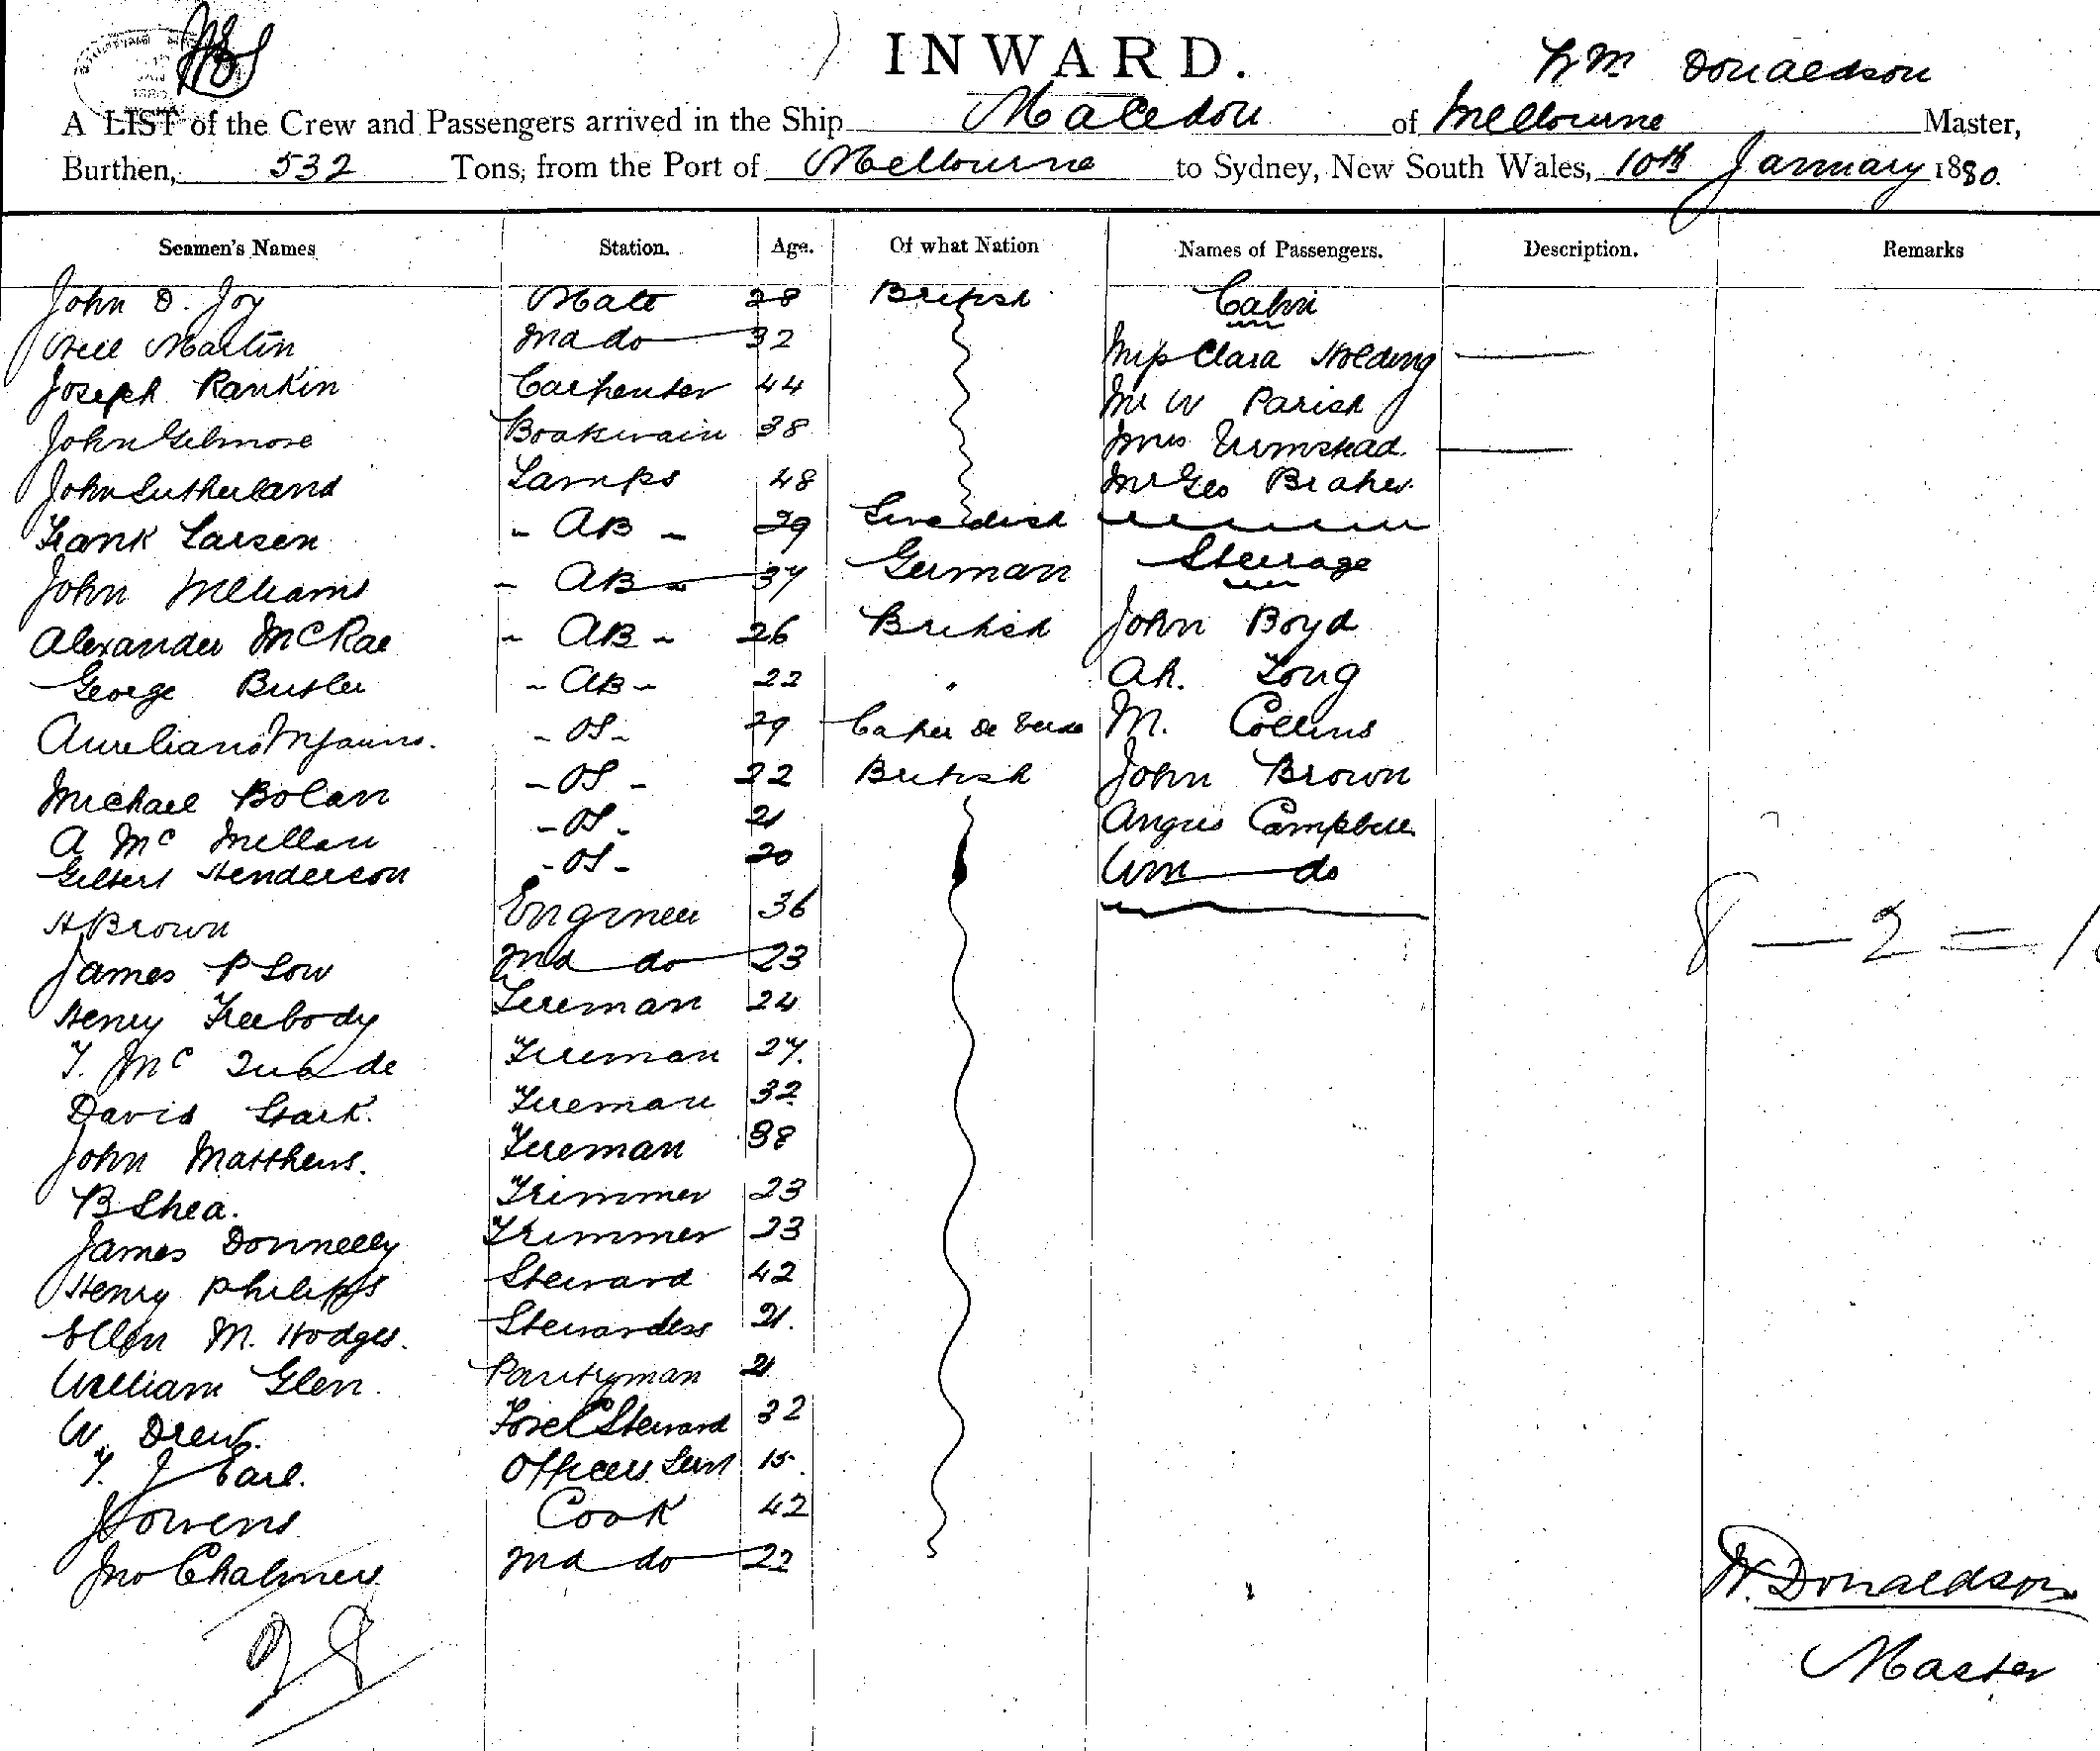 INWARD.
Wm Donaldson
A LIST of the Crew and Passengers arrived in the Ship Macedon of Melbourne Master,
Burthen, 532 Tons, from the Port of Melbourne to Sydney, New South Wales, 10th January 1880.
Seamen's Names Station. Age. Of what Nation Names of Passengers. Description. Remarks
John D. Joy Mate 28 British Cabin
Neil Martin 2nd do 32 Miss Clara Holding
Joseph Rankin Carpenter 44 Mr W Parish
John Gilmore Boatswain 38 Mrs Urmstead
John Sutherland Lamps 48 Mr Geo
Frank Larsen - AB - 29 Swedish
John Williams - AB - 37 German Steerage
Alexander McRae - AB - 26 British John Boyd
George Butler - AB - 22 " Ah. Tong
Aureliano - OS - 29 de Verde M. Collins
Michael Bolan - OS - 22 British John Brown
A Mc Millan - OS - 21 Angus Campbell
Gilbert Henderson - OS - 20 Wm do
H Brown Engineer 36
James P Low 2nd do 23
8 - 2 =
Henry Freebody Fireman 24
T. Mc Quade Fireman 27.
David Stark. Fireman 32
John Matthews. Fireman 38
B Shea. Trimmer 23
James Donnelly Trimmer 23
Henry Philipps Steward 42
Ellen M. Hodges. Stewardess 21.
William Glen. Pantryman 21
W. Drew. Steward 32
T. J Earl. Officers Servt 15.
J Owens Cook 42
Jno Chalmers 2nd do 22
W. Donaldson
Master
28